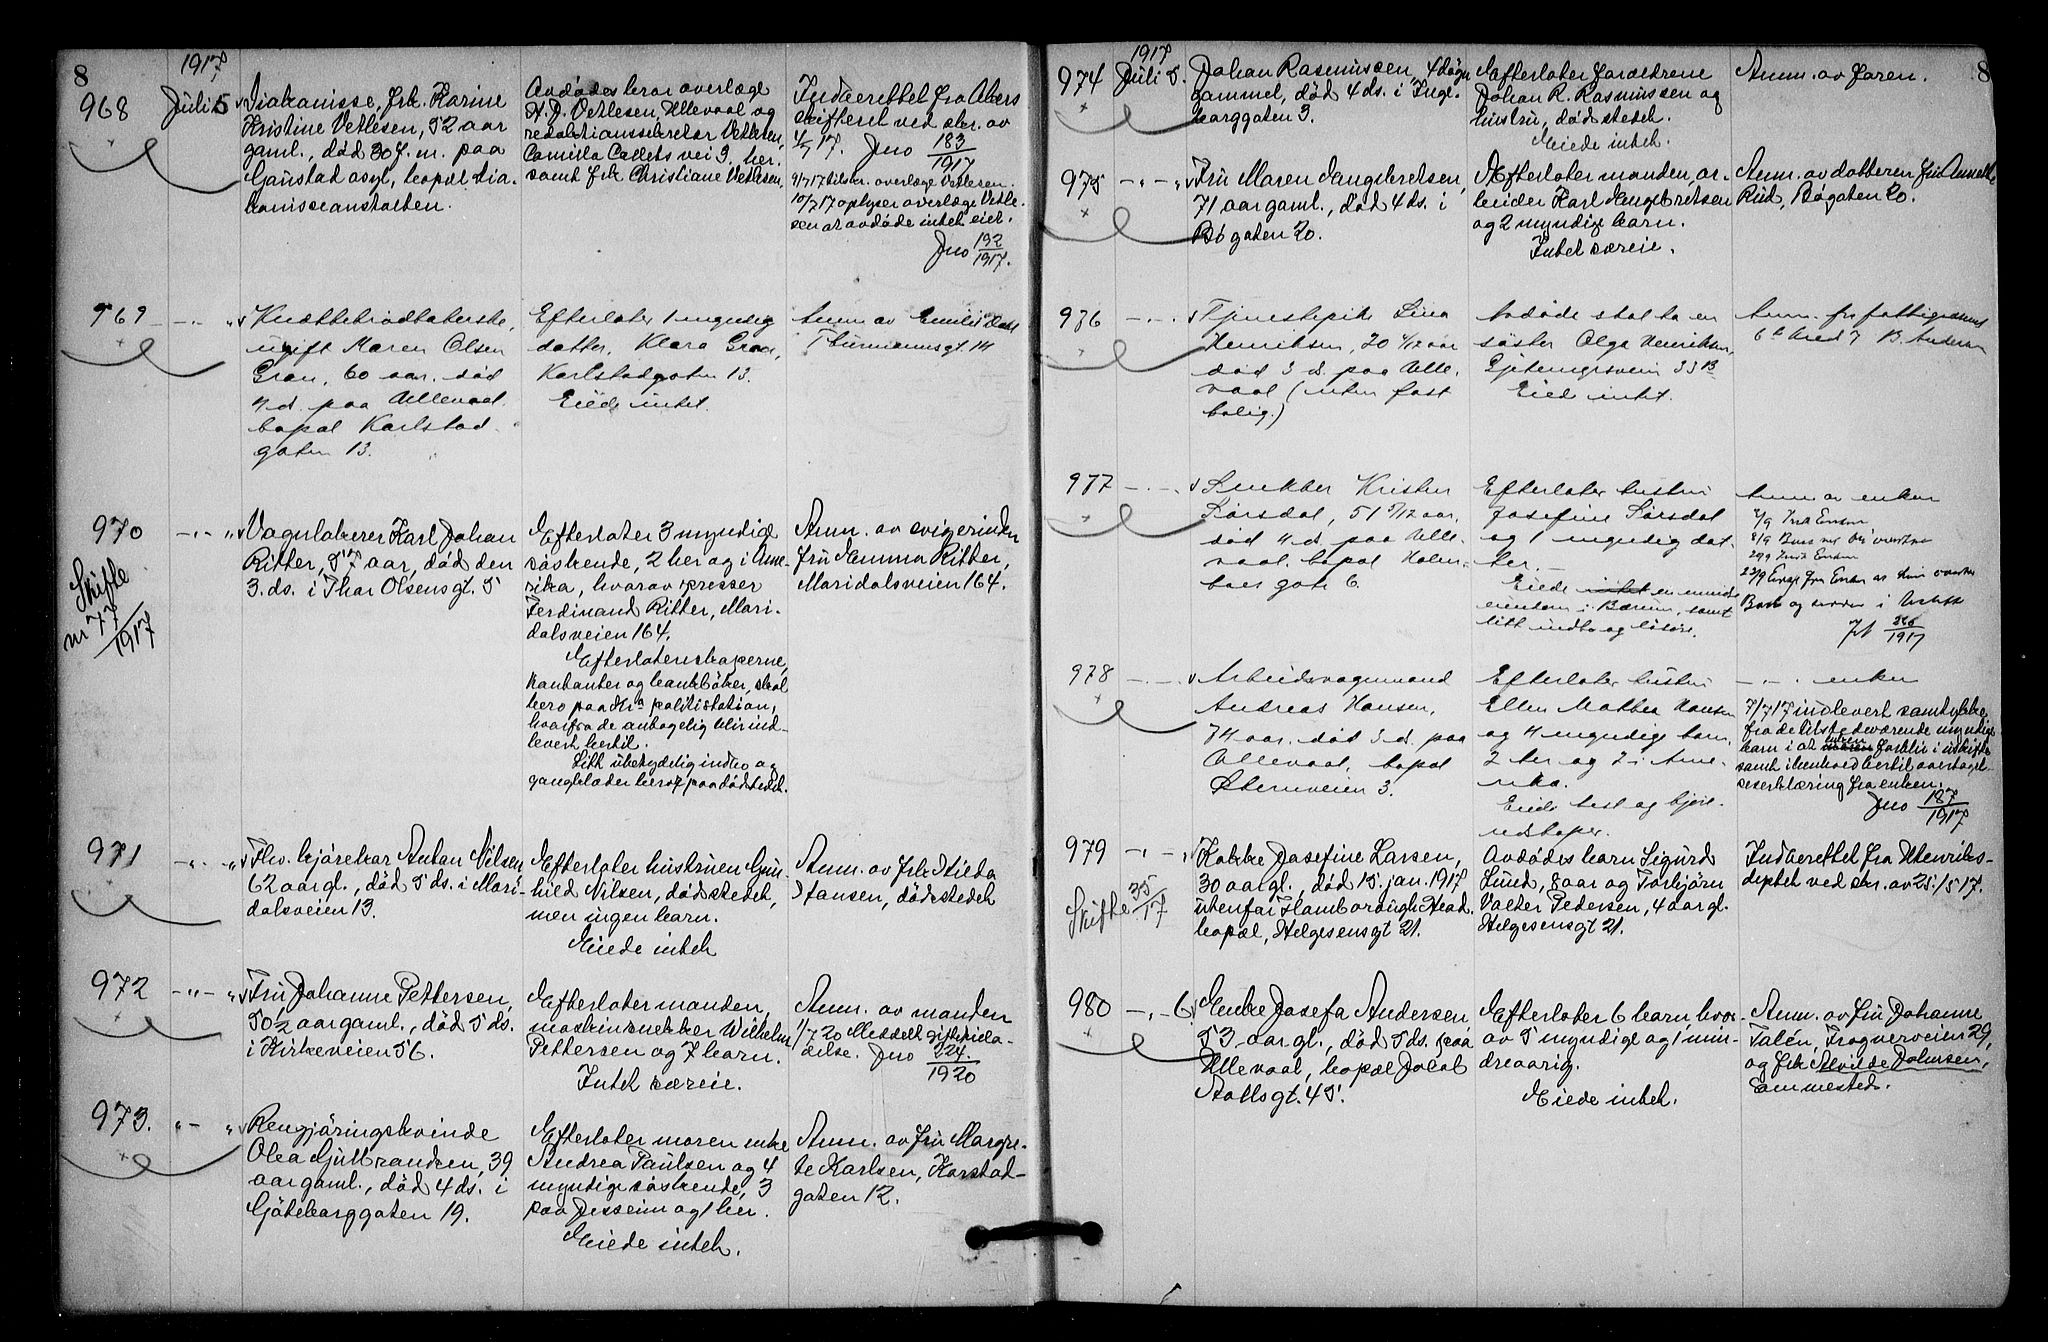 8
1917
968
Juli 5
Diakonisse, frk. Karine
Kristine Vetlesen, 52 aar
gaml., død 30 f. m. paa
Gaustad asyl, bopæl Dia-
konisseanstalten.
Avdødes bror overlæge
H. J. Vetlesen, Ullevaal og
redaktionssekretær Vetlesen,
Camilla Colletts vei 3, her.
samt frk Christiane Vetlesen.
Indberettet fra Akers
skifteret ved skr. av
4/7 17. Jno 183/1917
9/7 17 tilskr. overlæge Vetlesen.
10/7 17 oplyser overlæge Vetle-
sen at avdøde intet eiet.
Jno 192/1917.
969
Knættebrødbakerske,
ugift Maren Olsen
Gran, 60 aar, død
4 d. paa Ullevaal.
bopæl Karlstad-
gaten 13.
Efterlater 1 myndig
datter, Klara Gran,
Karlstadgaten 13.
Eiede intet.
Anm. av Emilie
Thurmannsgt. 14
970
Skifte
nr 77/1917
Vognlakerer Karl Johan
Ritter, 57 aar, død den
3. ds. i Thor Olsensgt. 5
Efterlater 3 myndige
søskende, 2 her og i Ame-
rika, hvorav presser
Ferdinand Ritter, Mari-
dalsveien 164.
Efterlatenskaperne,
kontanter og bankbøker, skal
bero paa Kra politistation,
hvorfra de antagelig blir ind-
levert hertil.
Litt ubetydelig indbo og
gangklæder beror paa dødstedet.
Anm. av svigerinden
fru Emma Ritter,
Maridalsveien 164.
971
Fhv. kjørekar Anton Nilsen,
62 aar gl., død 5 ds. i Mari-
dalsveien 13.
Efterlater hustruen Gun-
hild Nilsen, dødstedet,
men ingen barn.
Eiede intet
Anm. av frk
Hansen, dødstedet
972
Fru Johanne Pettersen,
50½ aar gaml., død 5 ds.
i Kirkeveien 56.
Efterlater manden,
maskinsnekker Wilhelm
Pettersen og 7 barn.
Intet særeie.
Anm. av manden
1/7 20 Meddelt giftetilla-
delse. Jno 224/1920
973.
Rengjøringskvinde
Olea Gulbrandsen, 39
aar gaml., død 4 ds. i
Gøteborggaten 19.
Efterlater moren enke
Andrea Paulsen og 4
myndige søskende, 3
paa Jessheim og 1 her.
Eiede intet.
Anm. av fru Margre-
te Karlsen, Karstad-
gaten 12.
8
1917
974
Juli 5.
Johan Rasmussen, 4 døgn
gammel, død 4 ds. i Inge-
borggaten 3.
Efterlater forældrene
Johan R. Rasmussen og
hustru, dødstedet.
Eiede intet.
Anm. av faren.
975
Fru Maren Langebretsen,
71 aar gaml., død 4 ds. i
Bøgaten 20.
Efterlater manden, ar-
beider Karl Langebretsen
og 2 myndige barn.
Intet særeie.
Anm. av datteren fru Annette
Rud, Bøgaten 20.
976
Tjenestepike Lina
Henriksen, 20 aar
død 3 d. paa Ulle-
vaal (uten fast
bolig.)
Avdøde skal ha en
søster Olga Henriksen,
33 B
Eied intet.
Anm. fra fattigvæsenet
977
Snekker Kristen
Kørsdal, 51 5/12 aar,
død 4 d. paa Ulle-
vaal, bopæl Holm-
boes gate 6
Efterlater hustru
Josefine Kørsdal
og 1 myndig dat-
ter.
Eiede intet en mindre
eiendom i Bærum, samt
litt indbo og løsøre.
Anm. av enken
1917
978
Arbeidsvognmand
Andreas Hansen,
74 aar, død 3 d. paa
Ullevaal, bopæl
Østernveien 3.
Efterlater hustru
Ellen Mathea Hansen
og 4 myndige barn,
2 her og 2 i Ame-
rika.
Eiede hest og kjøre-
redskaper.
enken
7/7 17 indlevert samtykke
fra de tilstedeværende myndige
barn i at enken forblir i uskifte
samt i henhold hertil overtagel-
seserklæring fra enken.
Jno 187/1917
979
Skifte 35/17
Kokke Josefine Larsen,
30 aar gl., død 15. jan. 1917
utenfor Flamborough Head.
bopæl, Helgesensgt 21.
Avdødes barn Sigurd
Lund, 8 aar og Torbjørn
Valter Pedersen, 4 aar gl.
Helgesensgt 21.
Indberettet fra Utenriks-
deptet ved skr. av 25/5 17.
980
6.
Enke Josefa Andersen
53 aar gl., død 5 ds. paa
Ullevaal, bopæl Jacob
Aallsgt. 45.
Efterlater 6 barn, hvor-
av 5 myndige og 1 min-
dreaarig.
Eiede intet.
Anm. av fru Johanne
Talén, Frognerveien 29,
og frk Alvilde Johnsen,
sammesteds.